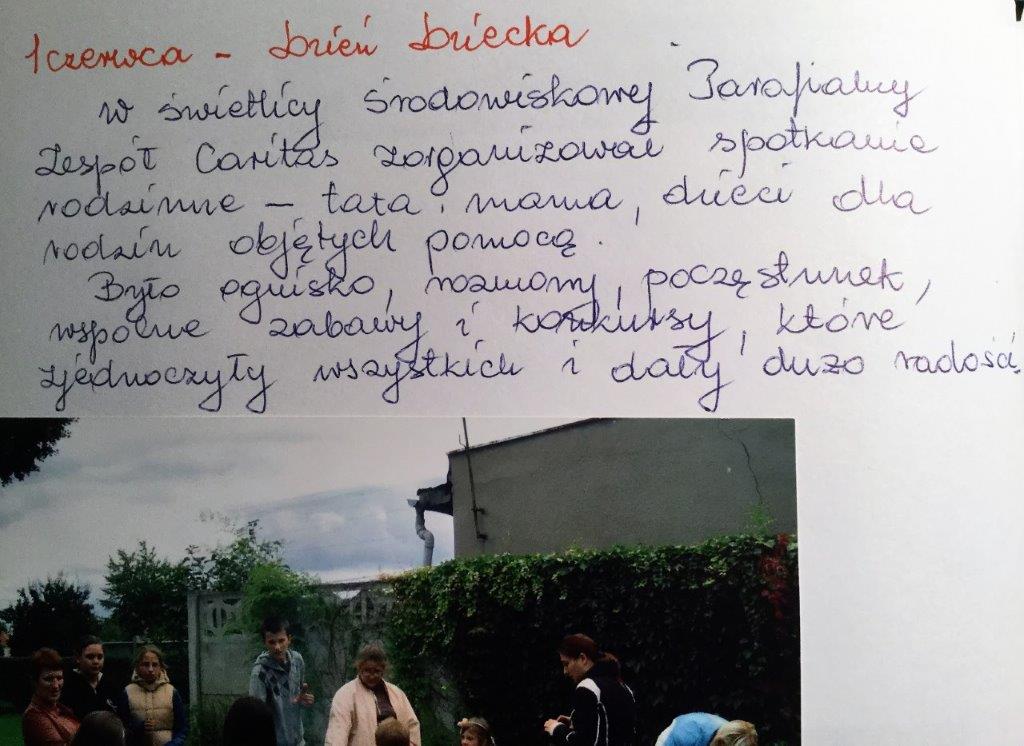 1 czerwca - Dzień Dziecka
W świetlicy środowiskowej Parafialny
Zespół Caritas zorganizował spotkanie
rodzinne - tata, mama, dzieci dla
rodzin objętych pomocą.
Było ognisko, rozmowy, poczęstunek,
wspólne zabawy i konkursy, które
zjednoczyły wszystkich i dały dużo radości.